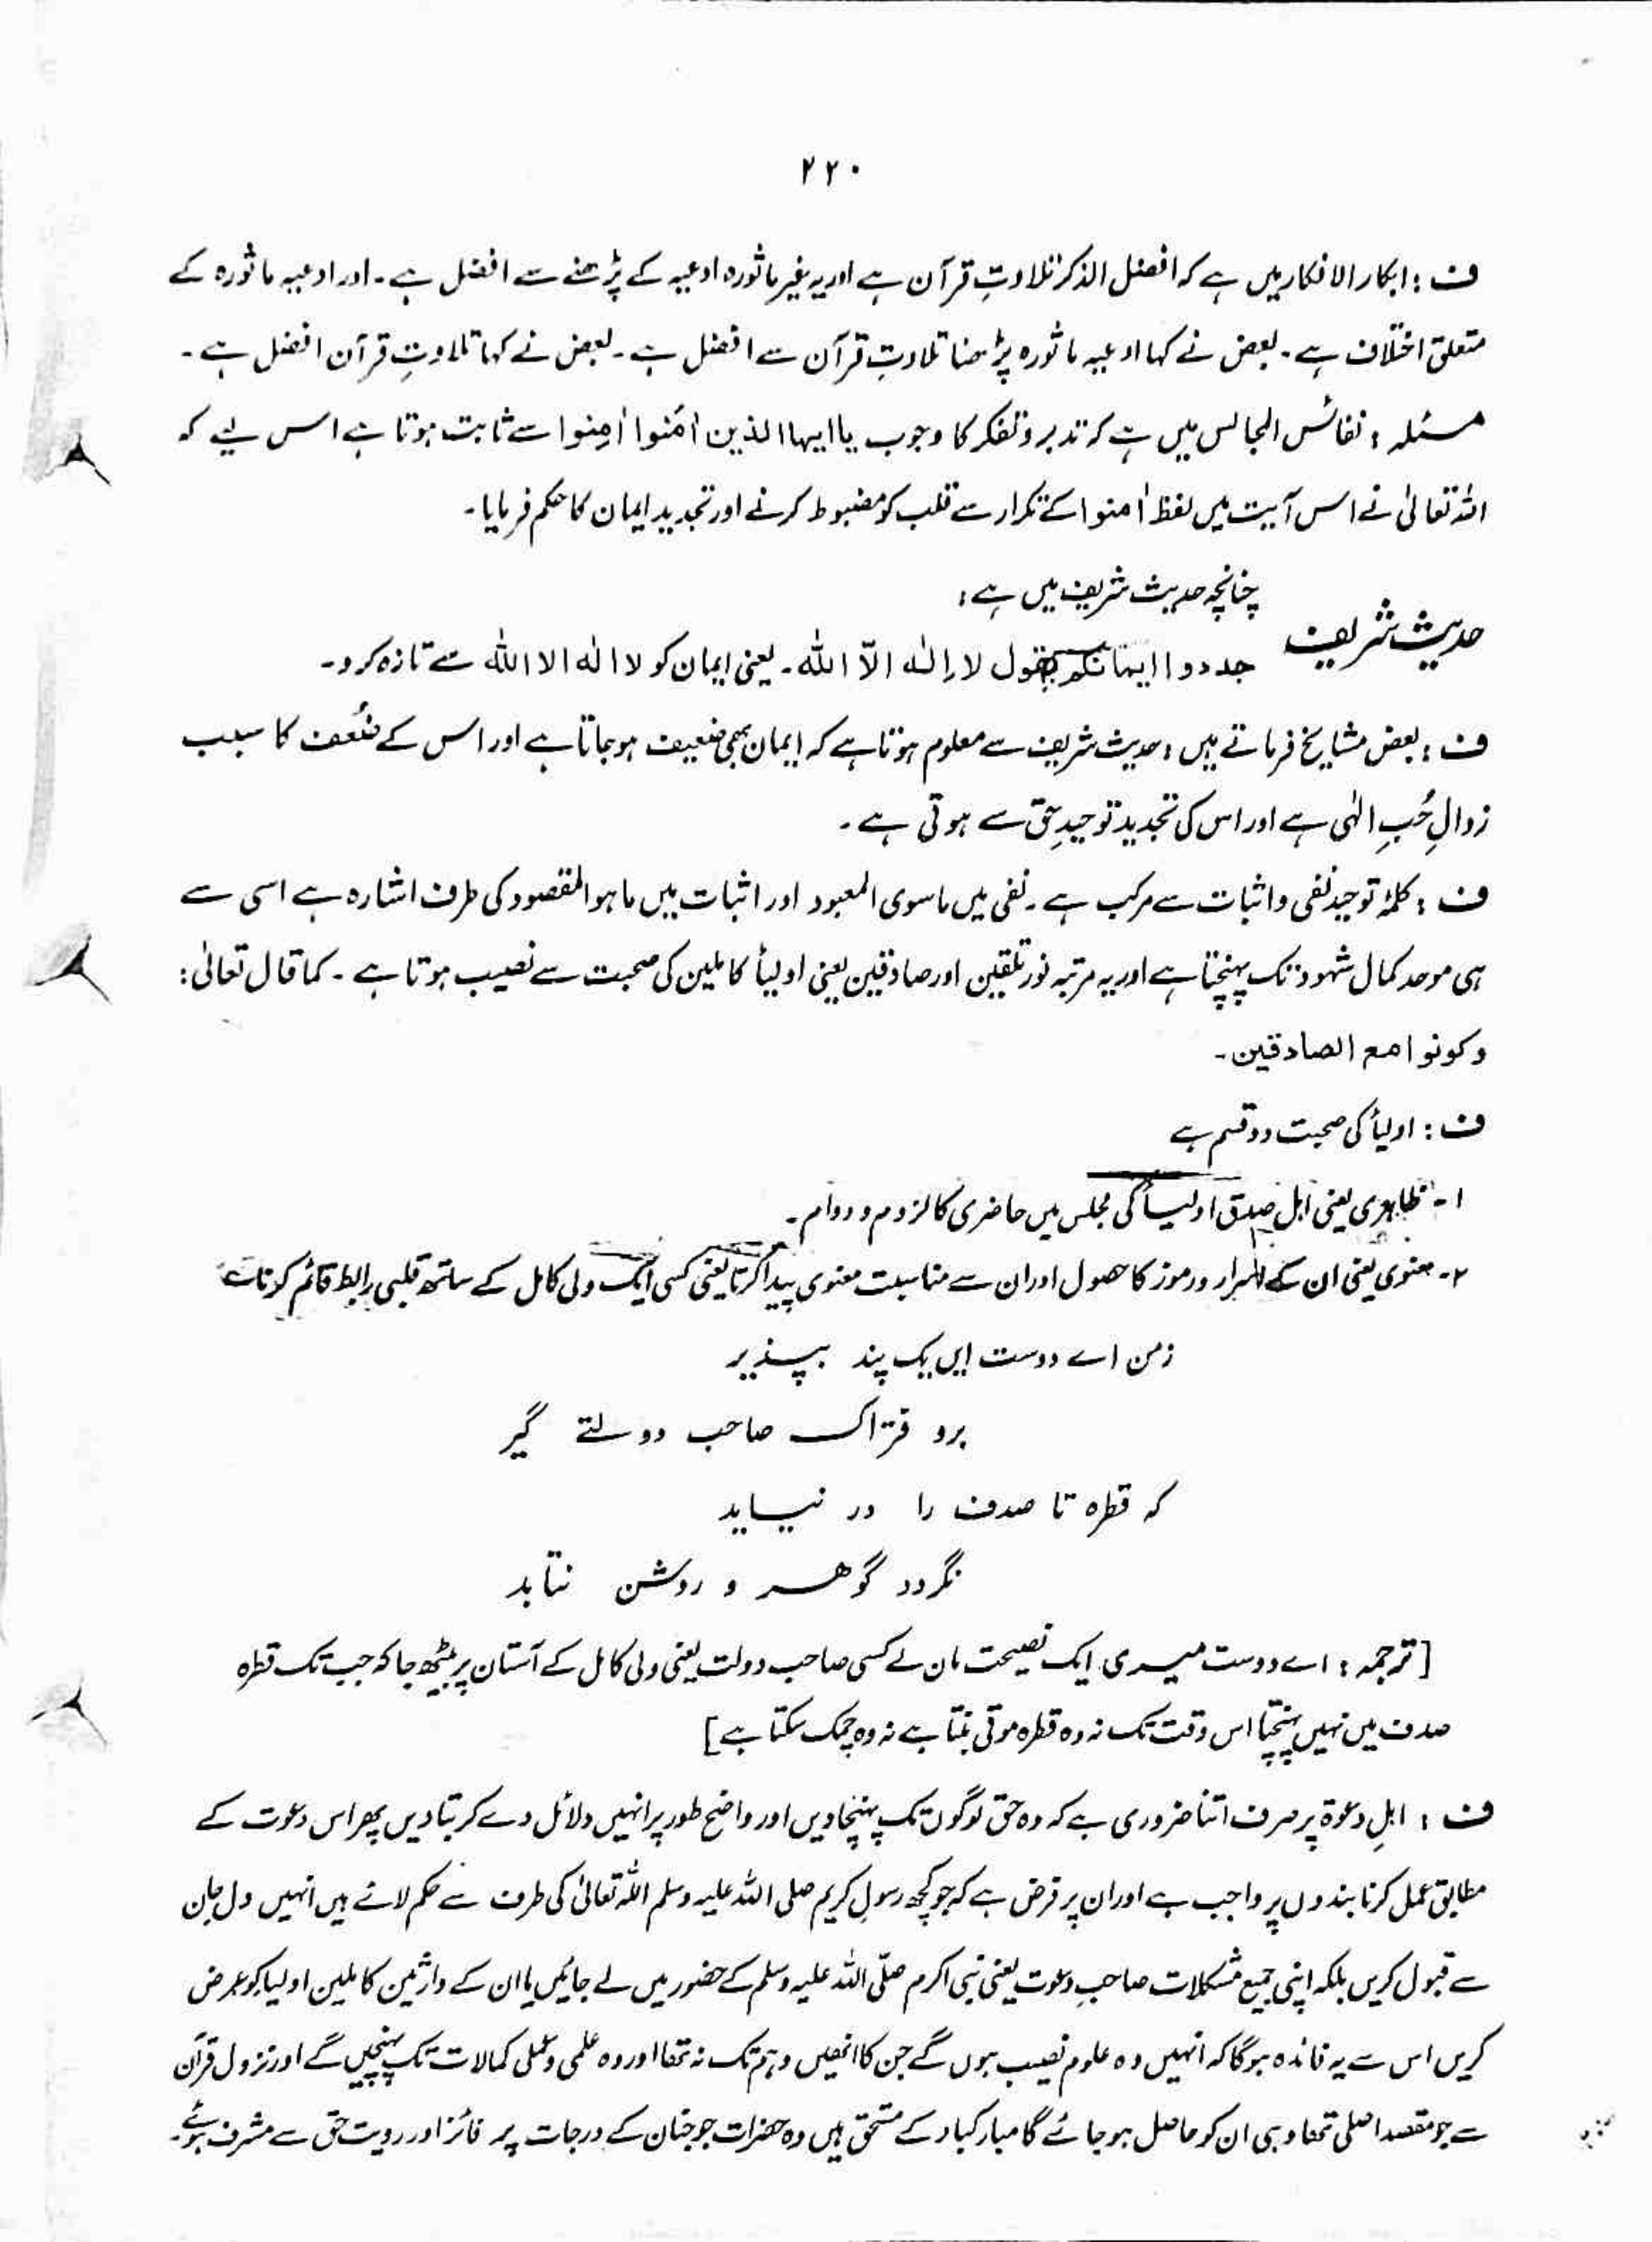 ۲۲۰
ف : ابکار الافکار میں ہے کہ افضل الذکر تلاوتِ قرآن ہے اور یہ غیر ماثورہ ادعیہ کے پڑھنے سے افضل ہے۔ اور ادعیہ ماثورہ کے
متعلق اختلاف ہے۔ بعض نے کہا ادعیہ ماثورہ پڑھنا تلاوتِ قرآن سے افضل ہے۔ بعض نے کہا تلاوتِ قرآن افضل ہے۔
مسئلہ : نفائس المجالس میں ہے کہ تدبر و تفکر کا وجوب یا ایہا الذین اٰمنوا اٰمِنوا سے ثابت ہوتا ہے اس لیے کہ
اللہ تعالیٰ نے اس آیت میں لفظ اٰمنوا کے تکرار سے قلب کو مضبوط کرنے اور تجدید ایمان کا حکم فرمایا۔
چنانچہ حدیث شریف میں ہے :
حدیث شریف
جددوا ایمانکم بقول لا اِلٰہ الّا اللہ۔ یعنی ایمان کو لا الٰہ الا اللہ سے تازہ کرو۔
ف : بعض مشایخ فرماتے ہیں : حدیث شریف سے معلوم ہوتا ہے کہ ایمان بھی ضعیف ہو جاتا ہے اور اس کے ضُعف کا سبب
زوالِ حُبِ الٰہی ہے اور اس کی تجدید توحیدِ حق سے ہوتی ہے۔
ف : کلمۂ توحید نفی و اثبات سے مرکب ہے۔ نفی میں ماسوی المعبود اور اثبات میں ماہو المقصود کی طرف اشارہ ہے اسی سے
ہی موحد کمال شہود تک پہنچتا ہے اور یہ مرتبہ نور تلقین اور صادقین یعنی اولیأ کاملین کی صحبت سے نصیب ہوتا ہے۔ کما قال تعالیٰ :
وکونوا مع الصادقین۔
ف : اولیأ کی صحبت دو قسم ہے
۱۔ ظاہری یعنی اہل صدق اولیأ کی مجلس میں حاضری کا لزوم و دوام۔
۲۔ معنوی یعنی ان کے اسرار و رموز کا حصول اور ان سے مناسبت معنوی پیدا کرنا یعنی کسی ایک ولی کامل کے ساتھ قلبی رابطہ قائم کرنا ؎
زمن اے دوست ایں یک پند بپذیر
برو فتراک صاحب دولتے گیر
کہ قطرہ تا صدف را در نیاید
نگردد گوھر و روشن نتابد
[ترجمہ : اے دوست میری ایک نصیحت مان لے کسی صاحب دولت یعنی ولی کامل کے آستان پر بیٹھ جا کہ جب تک قطرہ
صدف میں نہیں پہنچتا اس وقت تک نہ وہ قطرہ موتی بنتا ہے نہ وہ چمک سکتا ہے]
ف : اہلِ دعوۃ پر صرف اتنا ضروری ہے کہ وہ حق لوگوں تک پہنچا دیں اور واضح طور پر انہیں دلائل دے کر بتا دیں پھر اس دعوت کے
مطابق عمل کرنا بندوں پر واجب ہے اور ان پر فرض ہے کہ جو کچھ رسولِ کریم صلی اللہ علیہ وسلم اللہ تعالیٰ کی طرف سے حکم لائے ہیں انہیں دل جان
سے قبول کریں بلکہ اپنی جمیع مشکلات صاحبِ دعوت یعنی نبی اکرم صلّی اللہ علیہ وسلم کے حضور میں لے جائیں یا ان کے وارثین کاملین اولیا کو عرض
کریں اس سے یہ فائدہ ہوگا کہ انہیں وہ علوم نصیب ہوں گے جن کا انھیں وہم تک نہ تھا اور وہ علمی و عملی کمالات تک پہنچیں گے اور نزول قرآن
سے جو مقصد اصلی تھا وہی ان کو حاصل ہو جائے گا مبارکباد کے مستحق ہیں وہ حضرات جو جنان کے درجات پر فائز اور رویت حق سے مشرف ہوئے۔